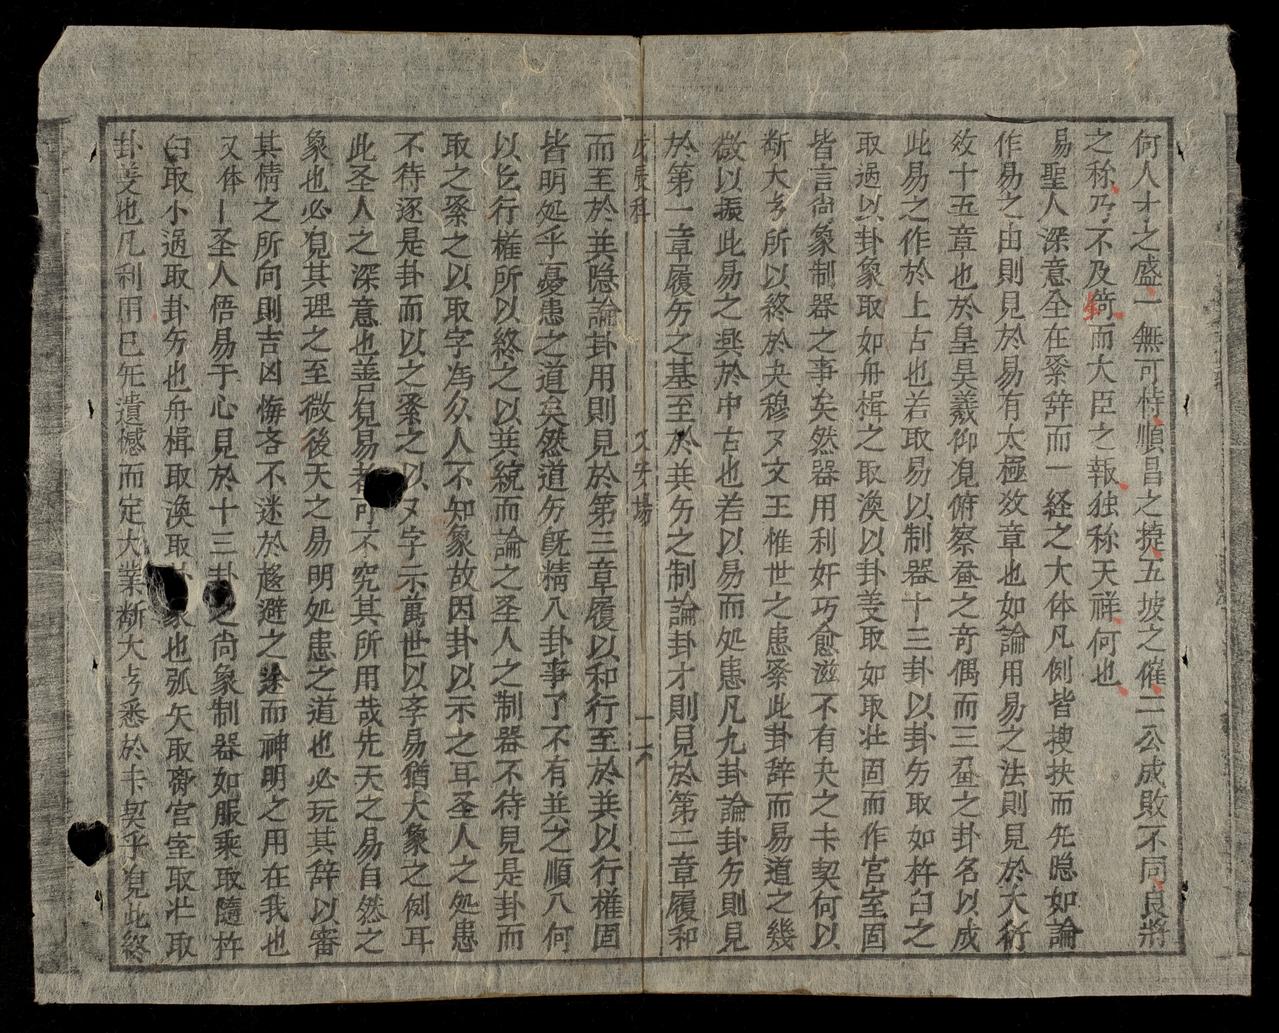 何人才之盛一無可恃順昌之撓五坡之催二公成敗不同良將
之称乃不及猗而大臣之報独称天祥何也
易聖人深意全在繋辞而一経之大体凡例皆搜抉而旡隐如論
作易之由則見於易有太極效章也如論用易之法則見於大衍
效十五章也於皇昊羲仰覓俯察畨之竒偶而三畨之卦名以成
此易之作於上古也若取易以制器十三卦以卦𠔃取如杵臼之
取過以卦象取如舟楫之取渙以卦㚑取如取壮固而作宫室固
皆言尚象制器之事矣然器用利奸巧愈滋不有夬之卡契何以
断大𡥉所以終於夬穆又文王惟世之患繋此卦辞而易道之幾
微以振此易之興於中古也若以易而処患凡九卦論卦𠔃則見
於第一章履𠔃之基至於共𠔃之制論卦才則見於第二章履和
久安場
十六
而至於共隐論卦用則見於第三章履以和行至於共以行権固
皆明処乎憂患之道矣然道𠔃旣精八卦事了不有共之順八何
以𠃔行権所以終之以共統而論之圣人之制器不待見是卦而
取之繋之以取字為众人不知象故因卦以示之耳圣人之処患
不待逐是卦而以之繋之以又字示萬世以李易猶大象之例耳
此圣人之深意也善見易者可不究其所用哉先天之易自然之
象也必覓其理之至微後天之易明処患之道也必玩其辞以審
其情之所向則吉凶悔吝不迷於趍避之途而神明之用在我也
又体一圣人悟易于心見於十三卦之尚象制器如服乘取隨杵
臼取小過取卦𠔃也舟楫取渙取象也弧矢取睽宫室取壮取
卦㚑也凡利用已旡遺憾而定大業断大𡥉悉於卡契乎覓此終